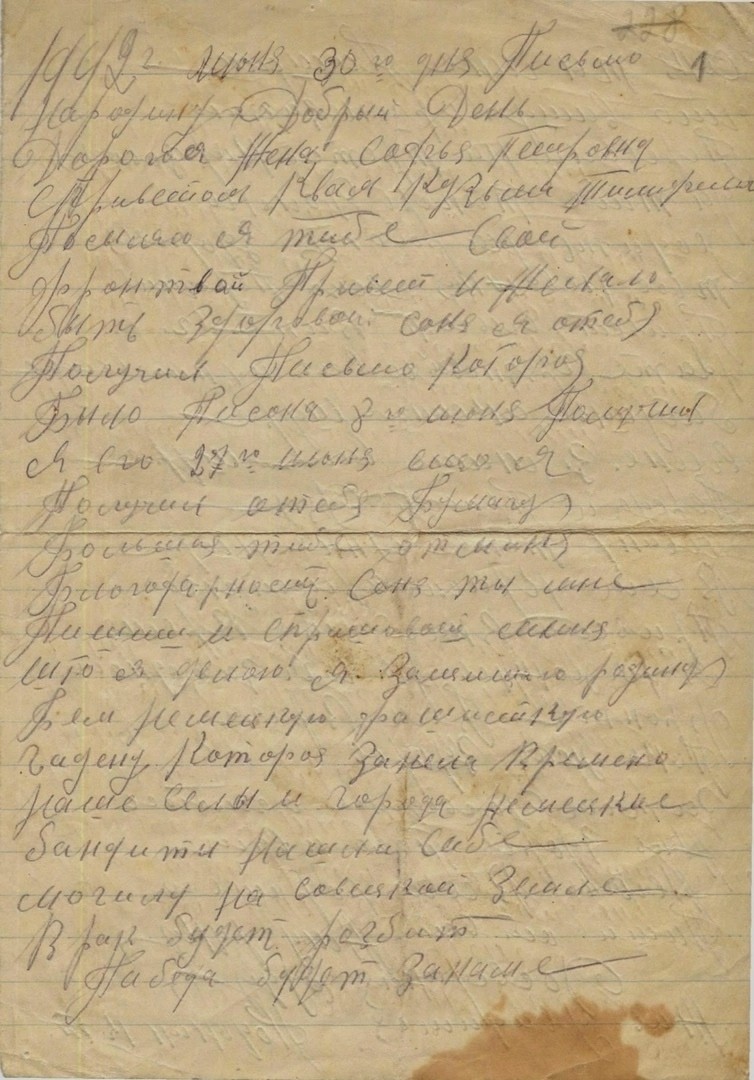 228
1942 г июня 30 го дня Письмо 1
Народину Добрый День
Дарогая Жена Софья Петровна
Сприветом Квам Кузьма
Посылаю я тебе Свой
фронтвой Привет и Желаю
быть Здоровой Соня я отебя
Получил Письмо Котороя
Было Писоня 7 го июня Получил
я его 27 го июня
Получил отебя Бумагу
Большая тибе отминя
Благодарность Соня ты мне
Пишиш и спрашоваеш миня
што я делаю я Защищаю родину
Бем немецкую фашисткую
гадену Котороя Заняла Времено
наше Селы и города немецкие
бандиты нашли Сибе
могилу на Совецкой Земле
Враг будет розбит
Пабеда будет Занаме